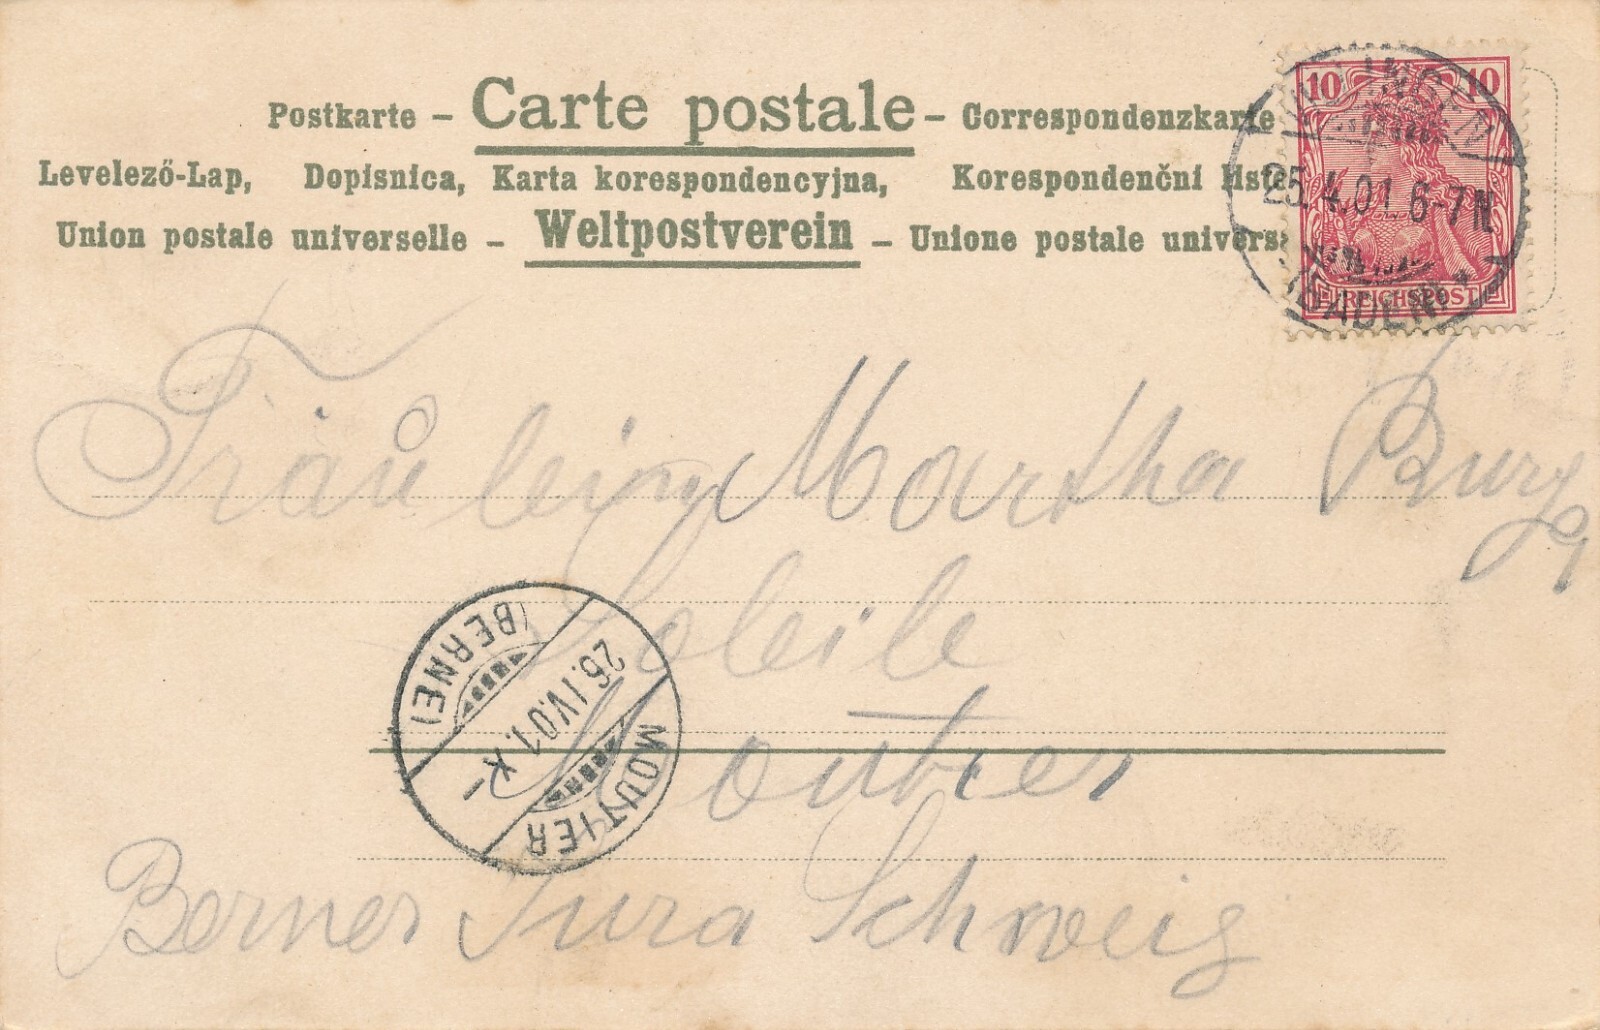 Postkarte – Carte postale – Correspondenzkarte
Levelező-Lap, Dopisnica, Karta korespondencyjna, Korespondenční liste
Union postale universelle – Weltpostverein – Unione postale univers
10 10
REICHSPOST
25.4.01 6-7N.
(BADEN)
Fräulein Martha Burg
Moutier
Berner Jura Schweiz
MOUTIER
26.IV.01.X
(BERNE)